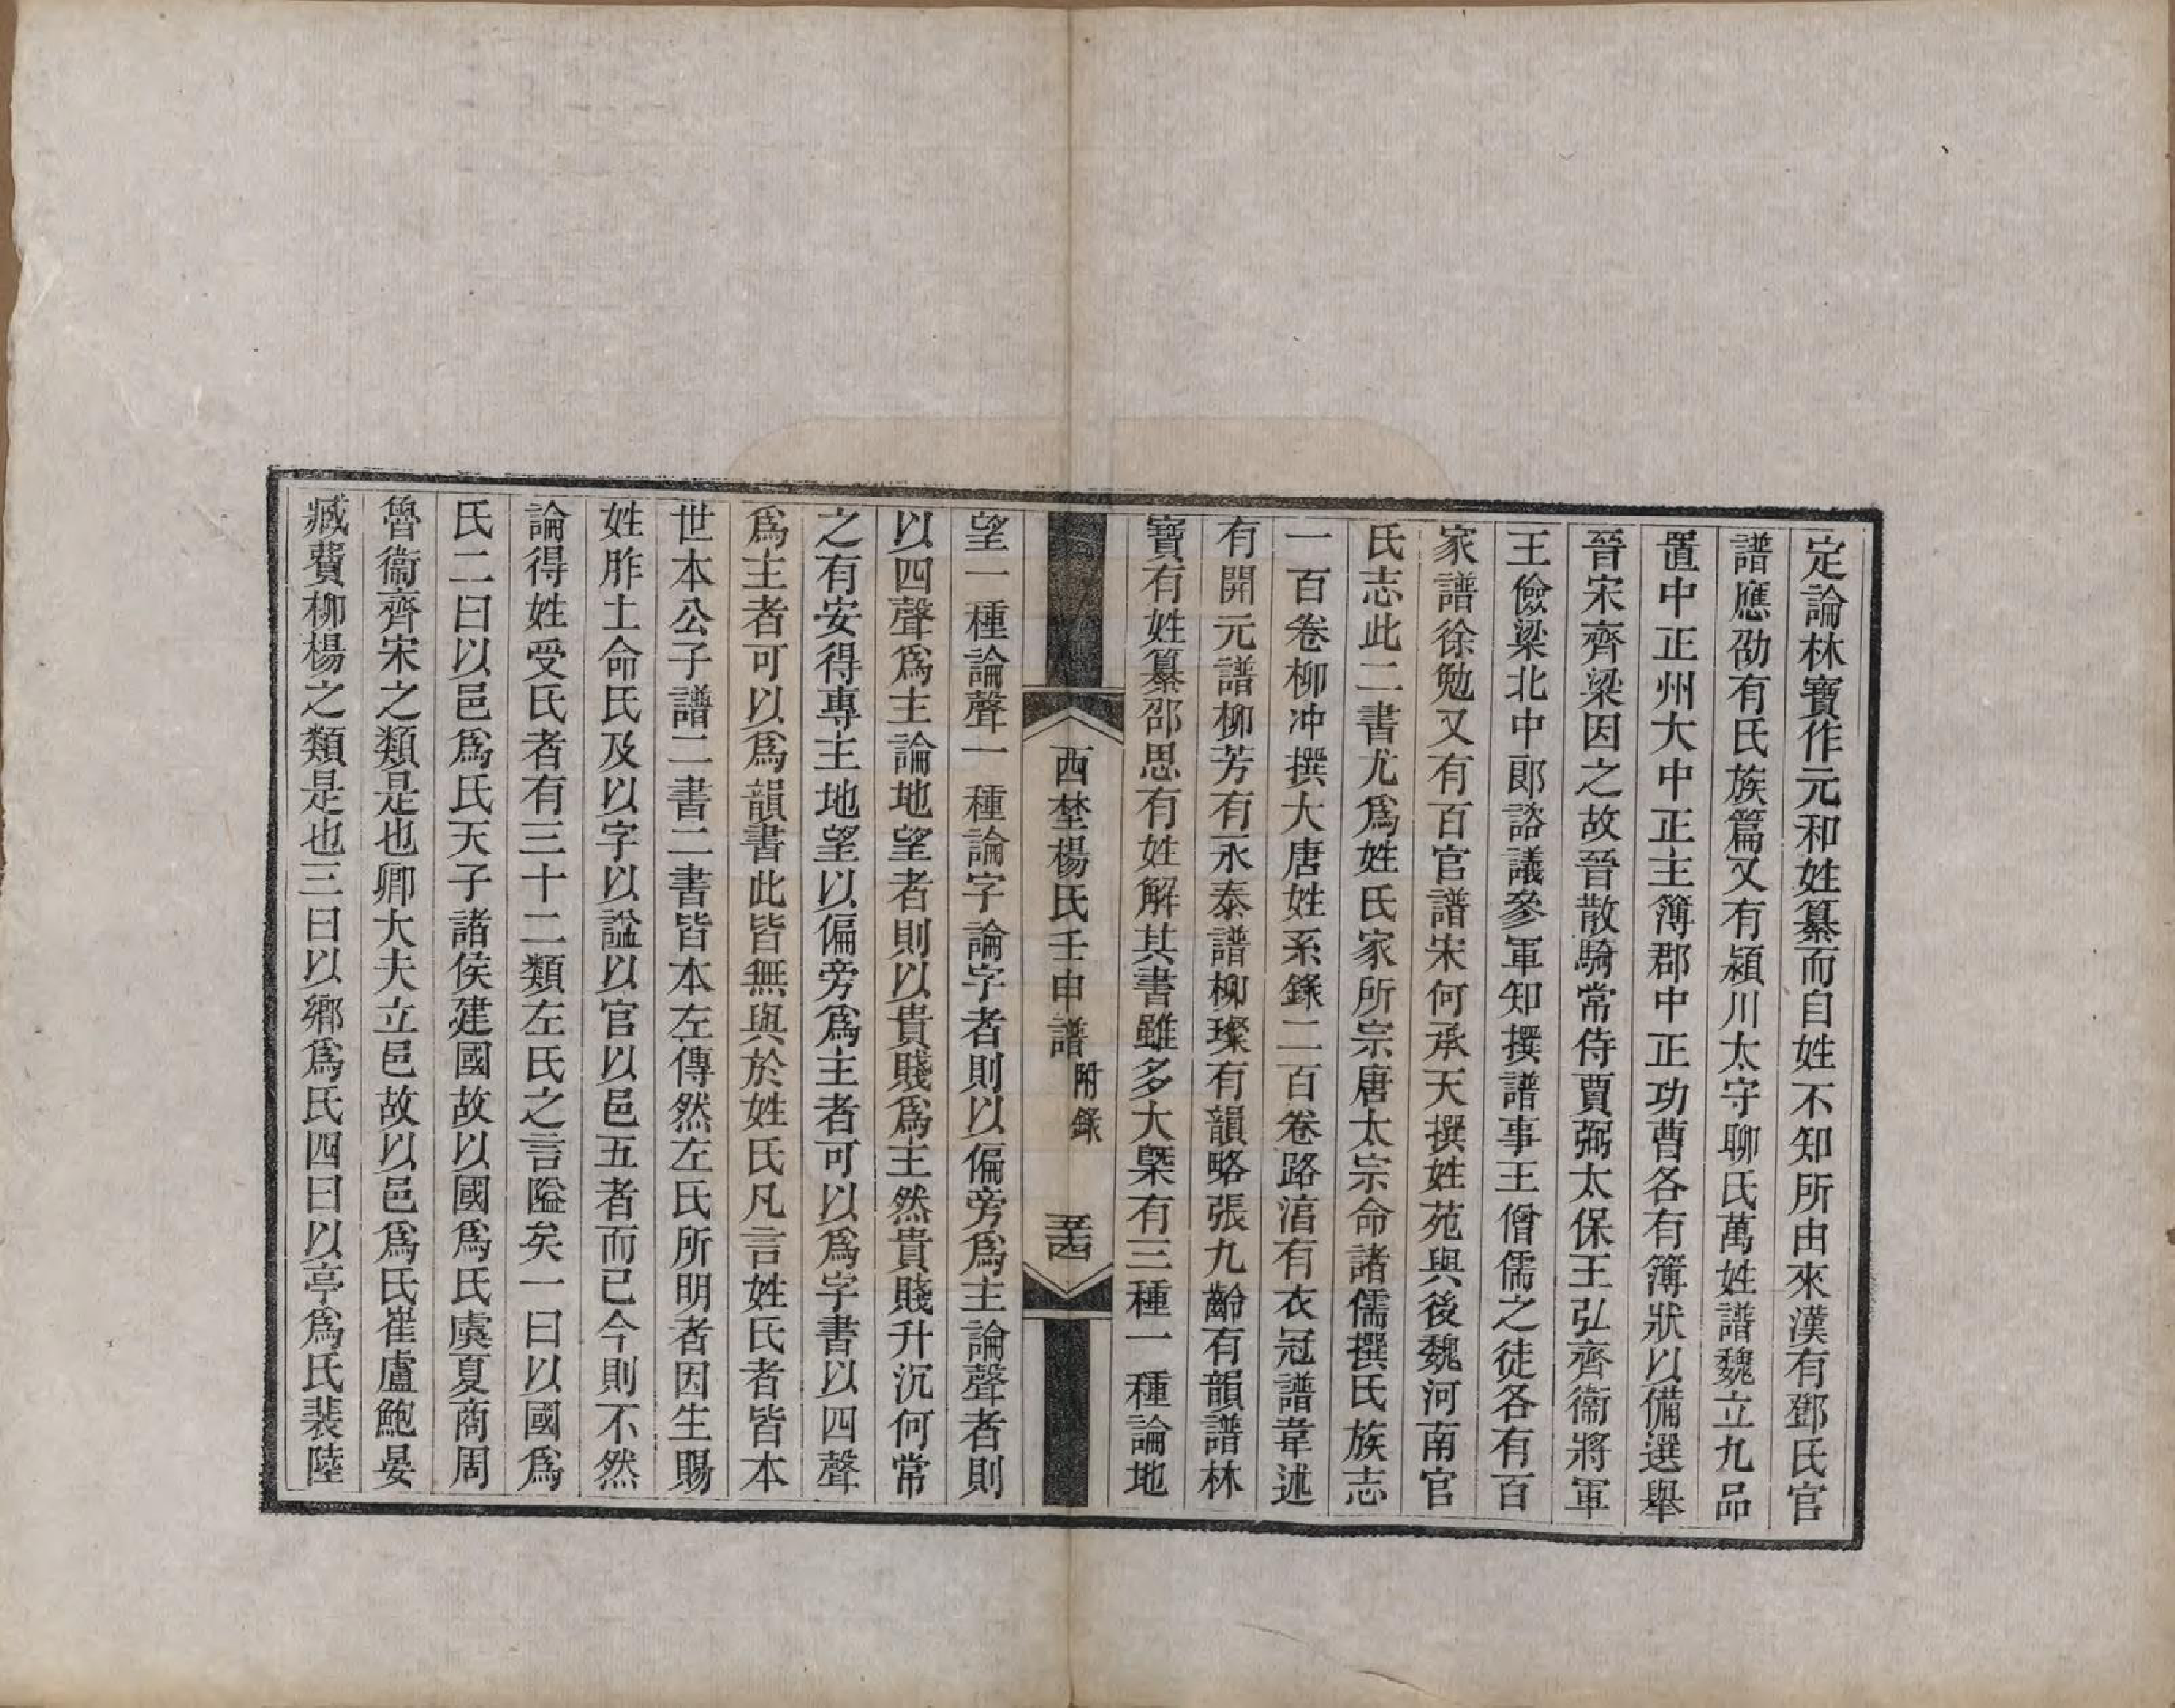 定論林寶作元和姓纂而自姓不知所由來漢有鄧氏官
譜應劭有氏族篇又有潁川太守聊氏萬姓譜魏立九品
置中正州大中正主簿郡中正功曹各有簿狀以備選舉
晉宋齊梁因之故晉散騎常侍賈弼太保王弘齊衞將軍
王儉梁北中郎諮議參軍知撰譜事王僧孺之徒各有百
家譜徐勉又有百官譜宋何承天撰姓苑與後魏河南官
氏志此二書尤爲姓氏家所宗唐太宗命諸儒撰氏族志
一百卷柳冲撰大唐姓系錄二百卷路淳有衣冠譜韋述
有開元譜柳芳有永泰譜柳璨有韻略張九齡有韻譜林
寶有姓纂邵思有姓解其書雖多大槩有三種一種論地
西埜楊氏壬申譜 附錄 五十四
望一種論聲一種論字論字者則以偏旁爲主論聲者則
以四聲爲主論地望者則以貴賤爲主然貴賤升沉何常
之有安得專主地望以偏旁爲主者可以爲字書以四聲
爲主者可以爲韻書此皆無與於姓氏凡言姓氏者皆本
世本公子譜二書二書皆本左傳然左氏所明者因生賜
姓胙土命氏及以字以諡以官以邑五者而已今則不然
論得姓受氏者有三十二類左氏之言隘矣一曰以國爲
氏二曰以邑爲氏天子諸侯建國故以國爲氏虞夏商周
魯衞齊宋之類是也卿大夫立邑故以邑爲氏崔盧鮑晏
臧費柳楊之類是也三曰以鄉爲氏四曰以亭爲氏裴陸